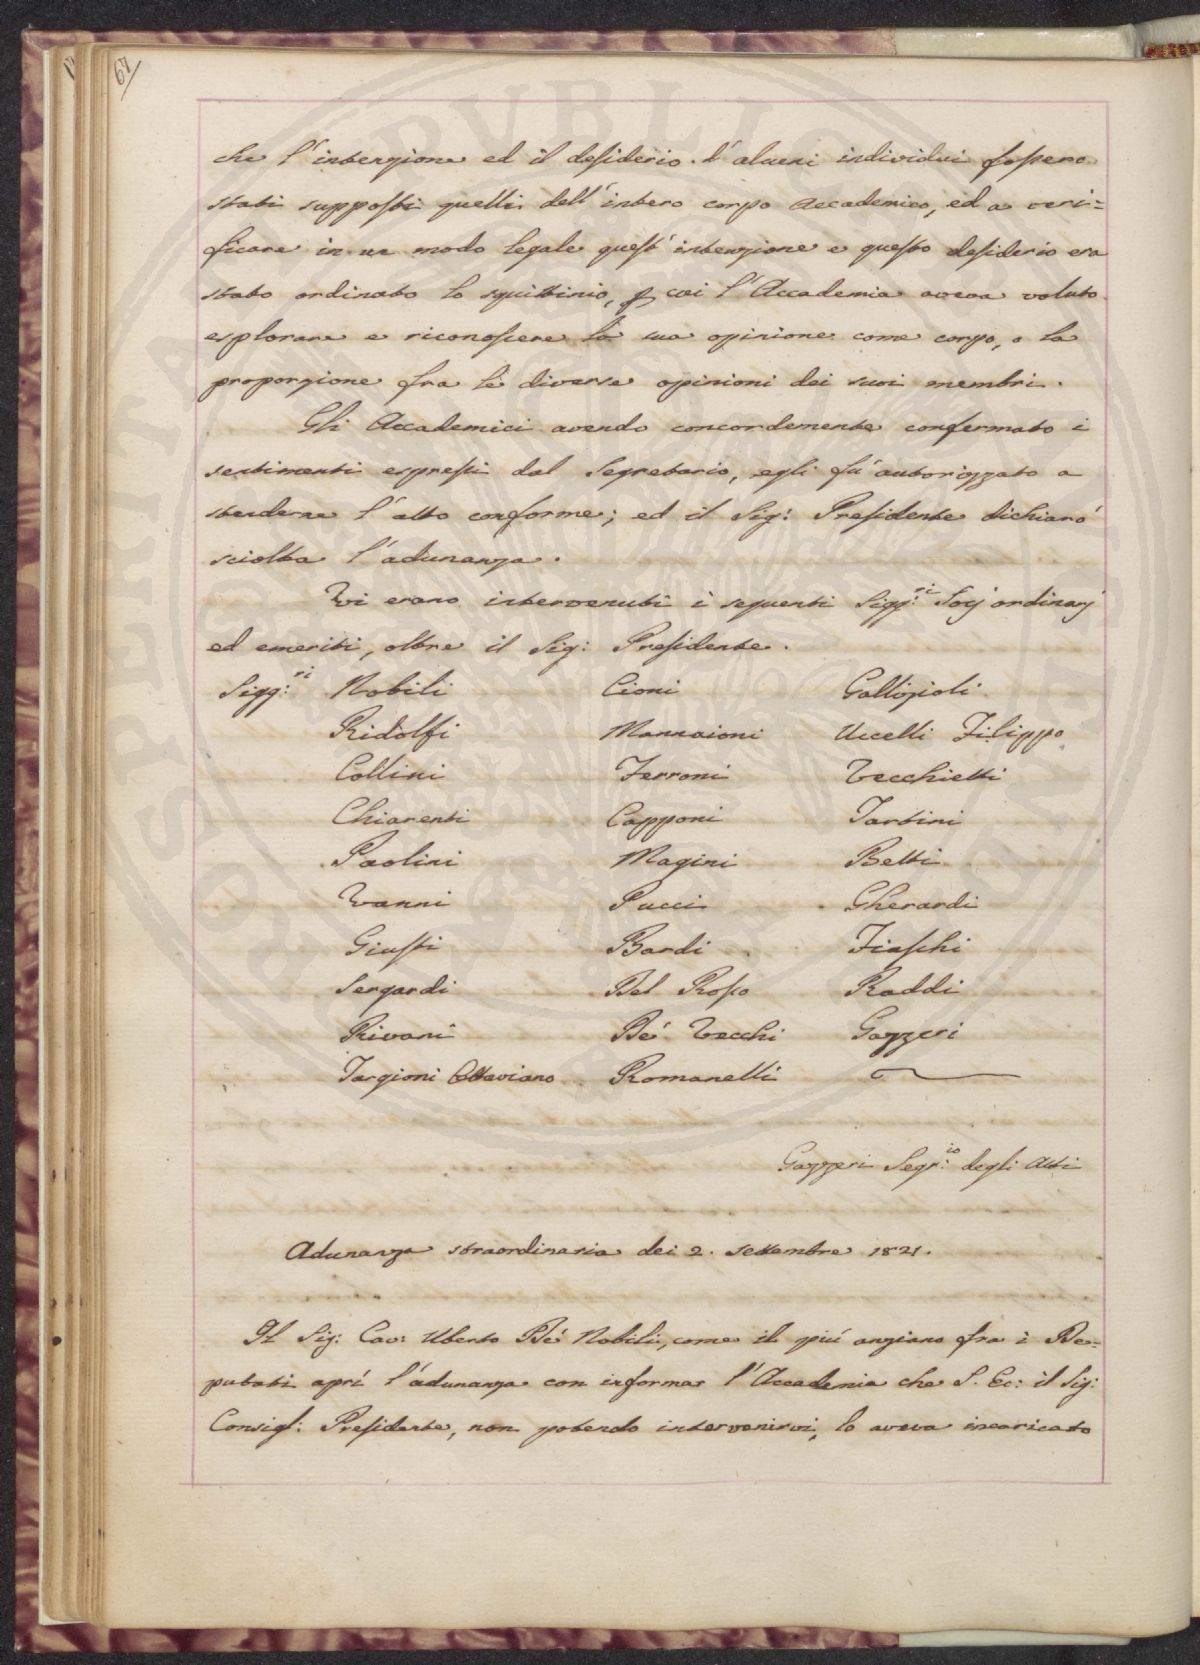 67/
che l'intenzione ed il desiderio d'alcuni individui fossero
stati supposti quelli dell'intero corpo Accademico, ed a veri=
ficare in un modo legale quest'intenzione e questo desiderio era
stato ordinato lo squittinio, p cui l'Accademia aveva voluto
esplorare e riconoscere la sua opinione come corpo, o la
proporzione fra le diverse opinioni dei suoi membri.
Gli Accademici avendo concordemente confermato i
sentimenti espressi dal Segretario, egli fù autorizzato a
stenderne l'atto conforme; ed il Sig: Presidente dichiarò
sciolta l'adunanza.
Vi erano intervenuti i seguenti Sigg:ri Socj ordinarj
ed emeriti, oltre il Sig: Presidente.
Sigg:ri Nobili Cioni Gallizioli
Ridolfi Mannaioni Uccelli Filippo
Collini Ferroni Vecchietti
Chiarenti Capponi Tartini
Paolini Magini Betti
Vanni Pucci Gherardi
Giusti Bardi Fiaschi
Sergardi Del Rosso Raddi
Rivani Dè Vecchi Gazzeri
Targioni Ottaviano Romanelli
Gazzeri Segr:io degli Atti
Adunanza straordinaria dei 2. settembre 1821.
Il Sig: Cav: Uberto Dè Nobili, come il più anziano fra i De=
putati aprì l'adunanza con informar l'Accademia che S. Ec: il Sig:
Consigl: Presidente, non potendo intervenirvi, lo aveva incaricato